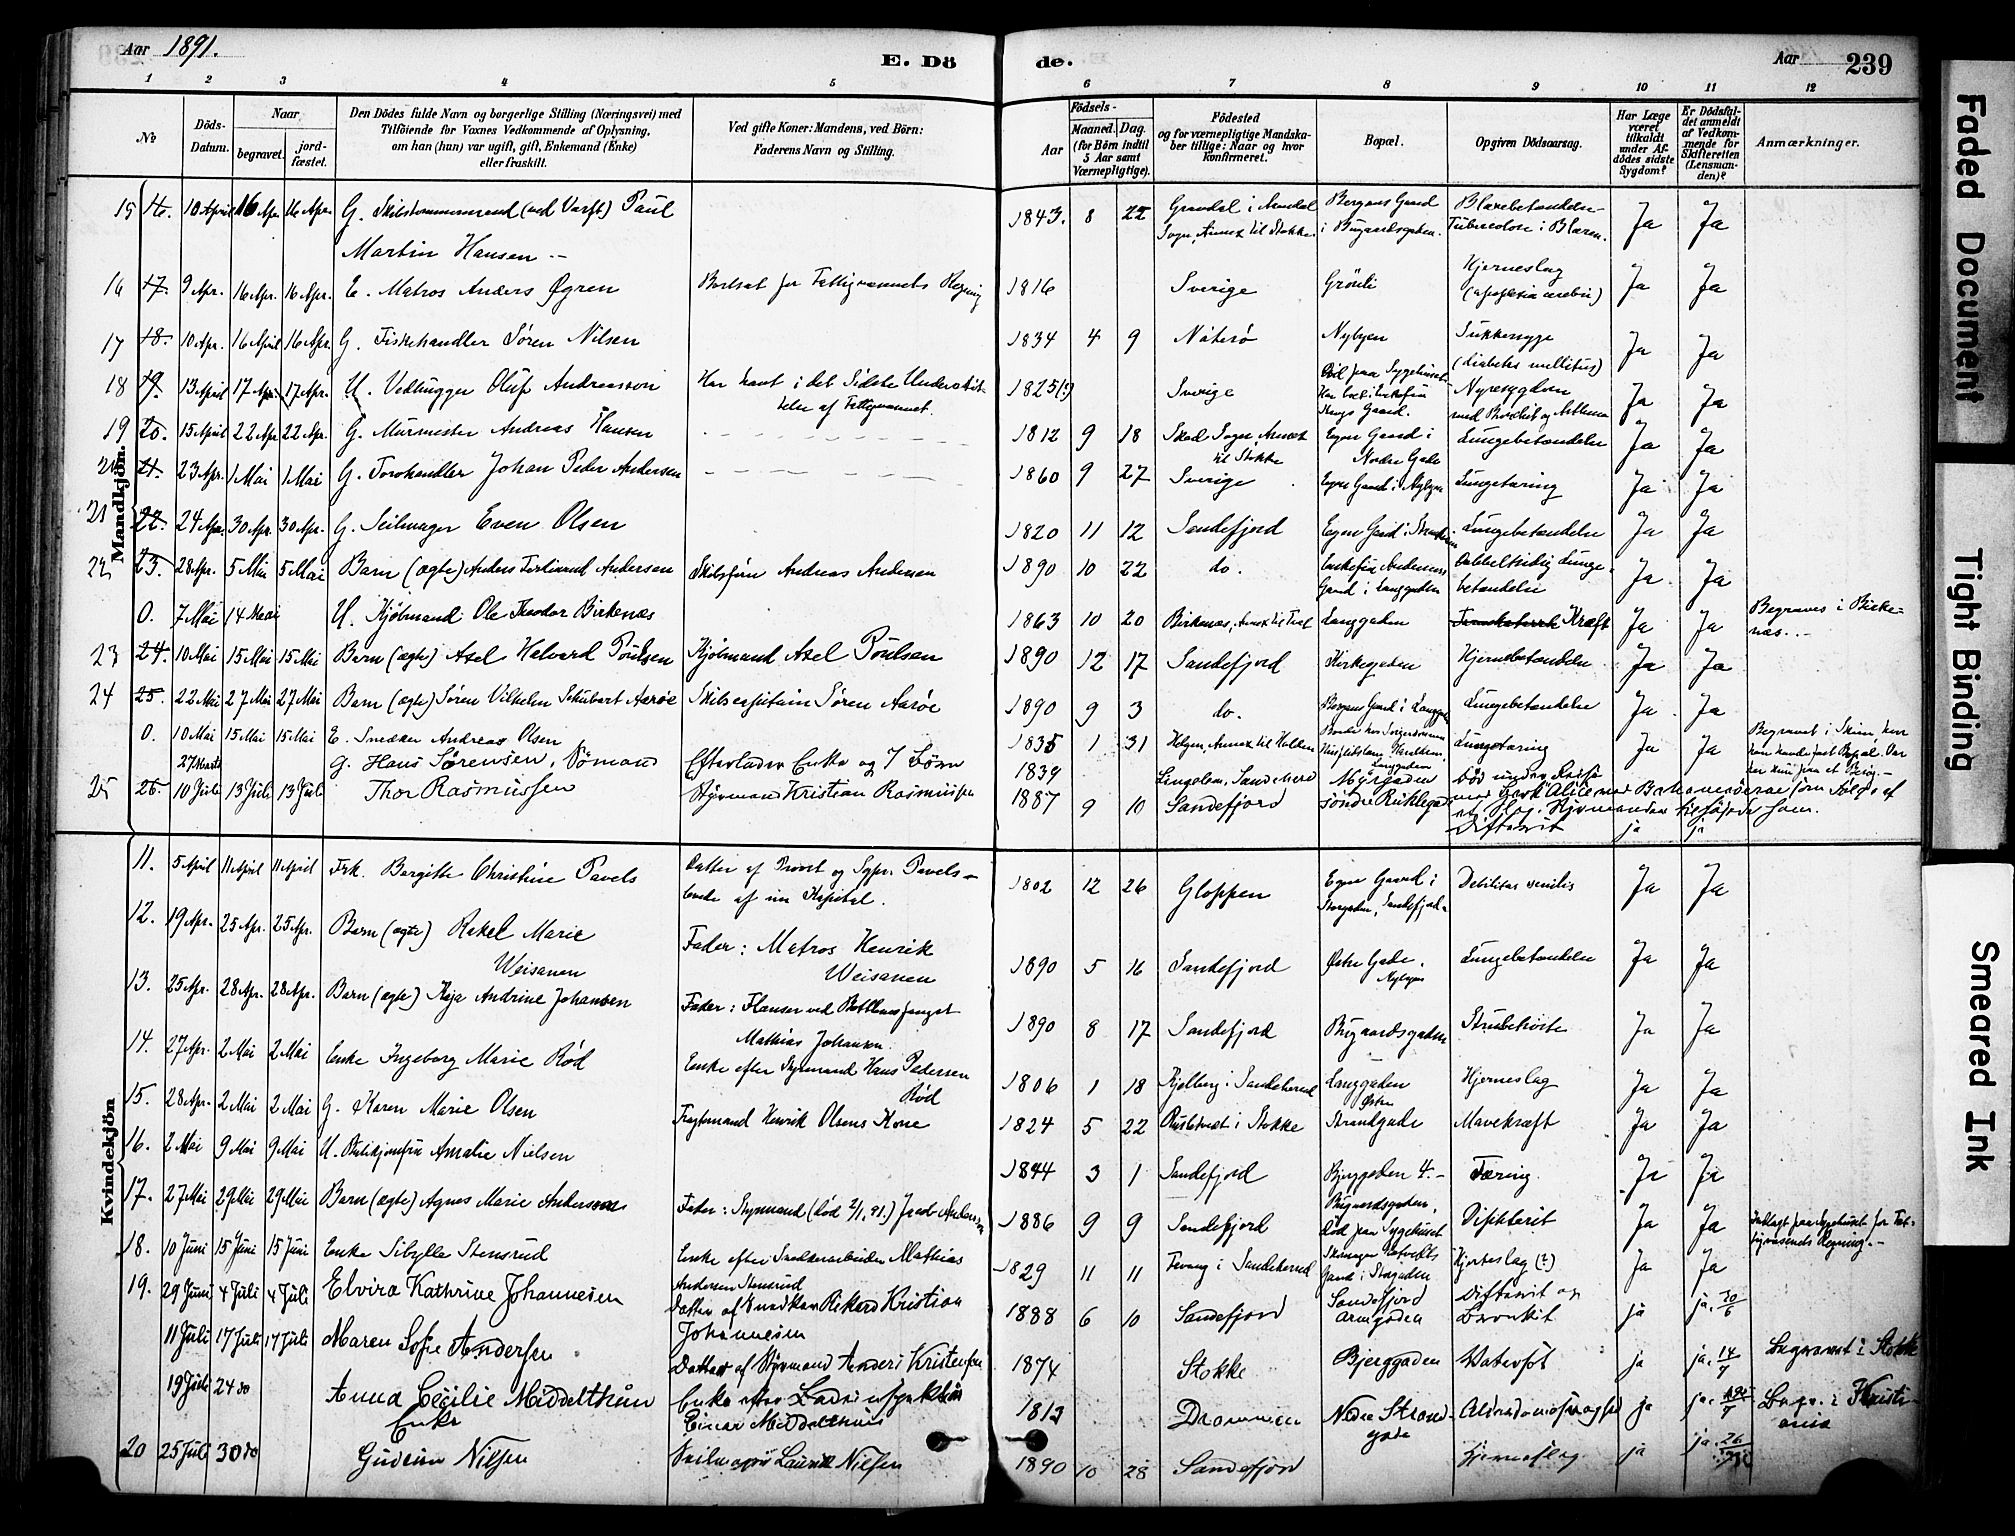 Aar 1891.
E. Dö
de.
Aar
239
1 2 3 4 5 6 7 8 9 10 11 12
No
Döds-Datum.
Naar
begravet.
jordfæstet.
Den Dödes fulde Navn og borgerlige Stilling (Næringsvei) med
Tilföiende for Voxnes Vedkommende af Oplysning,
om han (hun) var ugift, gift, Enkemand (Enke)
eller fraskilt.
Ved gifte Koner: Mandens, ved Börn:
Faderens Navn og Stilling.
Födsels-
Aar
Maaned. Dag.
(for Börn indtil
5 Aar samt
Værnepligtige).
Födested
og for værnepligtige Mandska-
ber tillige: Naar og hvor
konfirmeret.
Bopæl.
Opgiven Dödsaarsag.
Har Læge
været
tilkaldt
under Af-
dödes sidste
Sygdom?
Er Dödsfal-
det anmeldt
af Vedkom-
mende for
Skifteretten
(Lensman-
den)?
Anmærkninger.
Mandkjön.
15 16. 10 April 16 Apr. 16 Apr. G. Skibstømmermand (ved Værft) Paul
Martin Hansen 1843. 8 22 i Arendal Sogn, Annex til Stokke Bergans Gaard i Bugaardsgaden. Blærebetændelse Tuberculose i Blæren. Ja Ja
16 17. 9 Apr. 16 Apr. 16 Apr. E. Matros Anders Øgren Bortsat for Fattigvæsenets Regning 1816 Sverige Grönli Hjerneslag (apoplexia cerebri) Ja Ja
17 18. 10 Apr. 16 April 16 Apr. G. Fiskehandler Sören Nilsen 1834 4 9 Nøterø Nybyen Sukkersyge (diabetes mellitus) Ja Ja
18 19. 13 April 17 Apr. 17 Apr. U. Vedhugger Oluf Andreasson Har havt i det Sidste Understøt-
telse af Fattigvæsenet. 1825(?) Sverige Død paa Sygehuset. Nyresygdom med Ja Ja
19 20. 15 April 22 Apr. 22 Apr. G. Murmester Andreas Hansen 1812 9 18 Sogn, Annex til Stokke Egen Gaard i Nedre Gade Lungebetændelse Ja Ja
20 21. 23 Apr. 1 Mai 1 Mai G. Johan Peder Andersen 1860 9 27 Sverige Egen Gaard i Nybyen Lungetæring Ja Ja
21 22. 24 Apr. 30 Apr. 30 Apr. G. Seilmager Even Olsen 1820 11 12 Sandefjord Egen Gaard i Lungebetændelse Ja Ja
22 23. 28 Apr. 5 Mai 5 Mai Barn (ægte) Anders Ferdinand Andersen Skibsfører Andreas Andersen 1890 10 22 do. Enkefru Andersens Gaard i Langgaden Dobbeltsidig Lunge-
betændelse Ja Ja
0. 7 Mai 14 Mai U. Kjöbmand Ole Theodor Birkenæs 1863 10 20 Birkenæs, Annex til Langgaden Kræft Ja Ja Begraves i Birke-
næs.
23 24. 10 Mai 15 Mai 15 Mai Barn (ægte) Axel Halvard Poulsen Kjöbmand Axel Poulsen 1890 12 17 Sandefjord Kirkegaden Hjernebetændelse Ja Ja
24 25. 22 Mai 27 Mai 27 Mai Barn (ægte) Sören Vilhelm Schubart Aaröe Skibscaptain Sören Aaröe 1890 9 3 do. Gaard i Lungebetændelse Ja Ja
0. 10 Mai 15 Mai 15 Mai E. Snedker Andreas Olsen 1835 1 31 Helgen, Annex til Holden Langgaden Lungetæring Ja Ja Begravet i Skien, hvor
27 Marts G. Hans Sörensen, Sömand Efterlader Enke og 7 Børn 1839 Sandeherred Myrgaden
25 26. 10 Juli 13 Juli 13 Juli Thor Rasmussen Styrmand Kristian Rasmussen 1887 9 10 Sandefjord Difterit ja ja
Kvindekjön
11. 5 April 11 April 11 April Frk. Birgitte Christine Pavels Datter af Provst og Sgpr. Pavels
Levede af sin Kapital. 1802 12 26 Gloppen Egen Gaard i Storgaden, Sandefjord Debilitas senilis Ja Ja
12. 19 Apr. 25 Apr. 25 Apr. Barn (ægte) Rakel Marie
Weisanen Fader: Matros Henrik
Weisanen 1890 5 16 Sandefjord Østre Gade. Nybyen Lungebetændelse Ja Ja
13. 25 Apr. 28 Apr. 28 Apr. Barn (ægte) Kaja Andrine Johansen Fader: Flenser ved Bottlenosefangst
Mathias Johansen. 1890 8 17 Sandefjord Bugaardsgaden Strubehoste Ja Ja
14. 27 Apr. 2 Mai 2 Mai Enke Ingeborg Marie Röd Enke efter Styrmand Hans Pedersen
Röd 1806 1 18 Fjelberg i Sandeherred Langgaden Hjerneslag Ja Ja
15. 28 Apr. 2 Mai 2 Mai G. Karen Marie Olsen Fragtemand Henrik Olsens Kone 1824 5 22 i Stokke Østre Strandgade Mavekræft Ja Ja
16. 2 Mai 9 Mai 9 Mai U. Amalie Nielsen 1844 3 1 Sandefjord Bjerggaden 4. Tæring. Ja Ja
17. 27 Mai 29 Mai 29 Mai Barn (ægte) Agnes Marie Andersen Fader: Styrmand Andersen 1886 9 9 Sandefjord Bugaardsgaden, Død paa Sygehuset Difterit Ja Ja Indlagt paa Sygehuset for Fat-
tigvæsenets Regning.
18. 10 Juni 15 Juni 15 Juni Enke Sibylle Stensrud Enke efter Snedkerarbeider Mathias
Andersen Stensrud 1829 11 11 i Sandeherred Gaard i Storgaden Hjerteslag (?) Ja Ja
19. 29 Juni 4 Juli 4 Juli Elvira Kathrine Johannesen Datter af Snedker Rikard Kristian
Johannesen 1888 6 10 Sandefjord Sandefjord Difterit og
Bronkit ja ja. 30/6
11 Juli 17 Juli 17 Juli Maren Sofie Andersen Datter af Styrmand Anders Kristensen 1874 Stokke Bjerggaden Vatersot ja ja. 14/7 Begravet i Stokke
19 Juli 24 do Anna Cecilie Middelthun
Enke Enke efter
Einar Middelthun 1813 Drammen Nedre Strand-
gade Alderdomssvaghed ja ja Begr. i Kristi-
ania
20 25 Juli 30 do Gudrun Nilsen Seilmager Laurits Nilsen 1890 10 28 Sandefjord Hjerneslag ja ja 26/7
Faded Document
Tight Binding
Smeared Ink